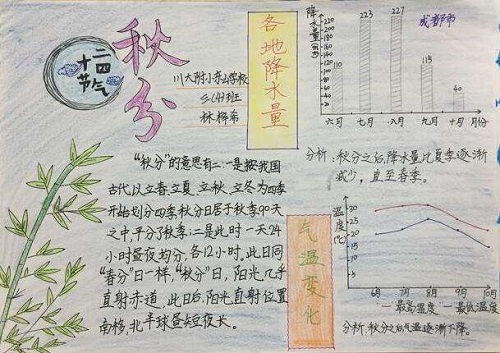 二四
十节气
秋分
川大附小东山学校
三(4)班
林桦希
"秋分"的意思有二:一是按我国
古代以立春、立夏、立秋、立冬为四季
开始划分四季,秋分日居于秋季90天
之中,平分了秋季;二是此时一天24
小时昼夜均分,各12小时。此日同
"春分"日一样,"秋分"日,阳光几乎
直射赤道,此日后,阳光直射位置
南移,北半球昼短夜长。
各地降水量
降水量(mm)
成都市
110
223
227
115
40
六月 七月 八月 九月 十月 月份
分析:秋分之后,降水量比夏季逐渐
减少,直至春季。
气温变化
温度(℃)
30
25
20
15
10
5
6月 7月 8月 9月 10月
最高温度 最低温度
分析:秋分之后气温逐渐下降。